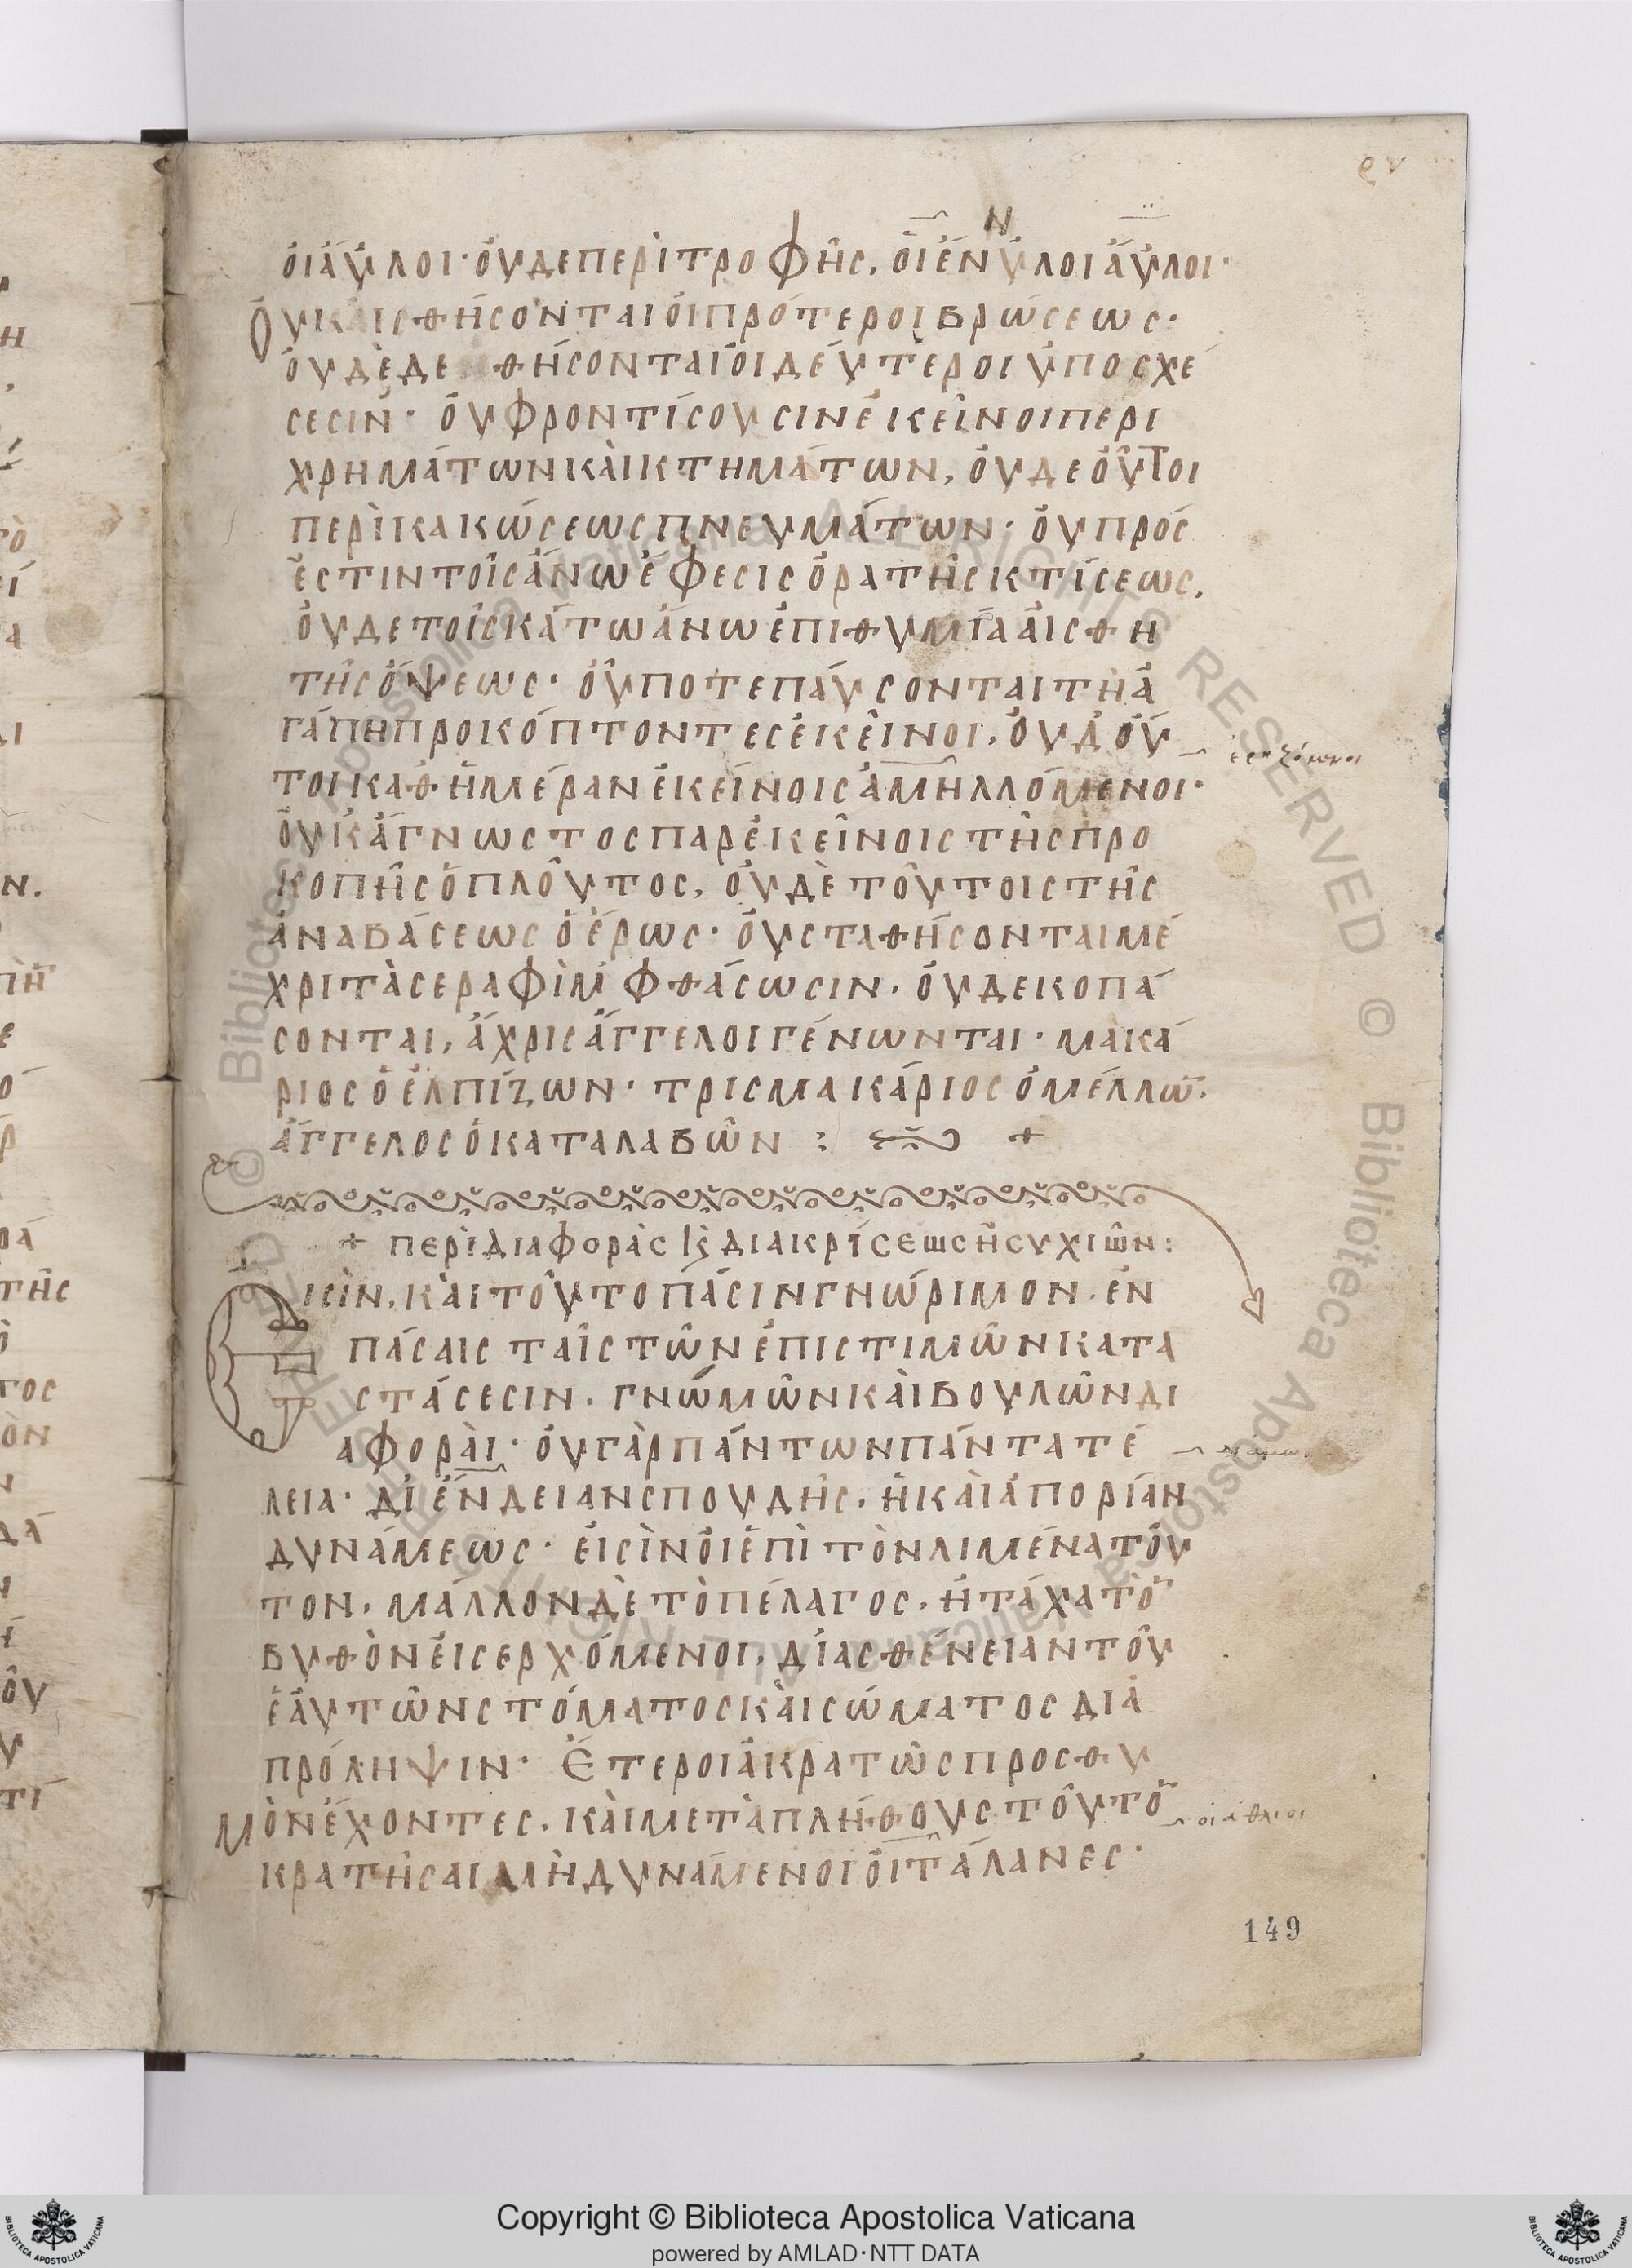 ὁι ἄϋλοι· ὀυδε περὶ τροφῆς, ὁι ἔνυλοι ἄϋλοι·
Ὀυκ ἀισθήσονται ὁι πρότεροι βρώσεως·
ὀυδὲ δεθήσονται ὁι δέυτεροι ὑποσχέ
σεσιν· ὀυ φροντίσουσιν ἐκεῖνοι περι
χρημάτων κὰι κτημάτων, ὀυδε ὁῦτοι
περὶ κακώσεως πνευμάτων· ὀυ πρός
ἐστιν τοῖς ἄνω ἔφεσις ὁρατῆς κτίσεως,
ὀυδε τοῖς κάτω ἄνω ἐπιθυμία ἀισθη
τῆς ὄψεως· ὀύποτε πάυσονται τῆ ἀ
γάπη προκόπτοντες ἐκεῖνοι, ὀυδ ὁύ
τοι καθ ἡμέραν ἐκείνοις ἁμηλλόμενοι·
ὀυκ ἄγνωστος παρ ἐκεῖνοις τῆς προ
κοπῆς ὁ πλοῦτος, ὀυδὲ τούτοις τῆς
ἀναβάσεως ὁ ἔρως· ὀυ σταθήσονται μέ
χρι τὰ σεραφὶμ φθάσωσιν· ὀυδε κοπά
σονται, ἄχρις ἄγγελοι γένωνται· μακά
ριος ὁ ἐλπίζων· τρισμακάριος ὁ μέλλω̅·
ἄγγελος ὁ καταλαβῶν :
+ περὶ διαφορὰς κ̀ διακρίσεως ἡσυχιῶν:
Εἰσὶν, κὰι τοῦτο πάσιν γνώριμον, ἐν
πάσαις ταῖς τῶν ἐπιστιμῶν κατα
στάσεσιν, γνώμῶν κὰι βουλῶν δι
αφορὰι· ὀυ γὰρ πάντων πάντα τέ
λεια· δι ἔνδειαν σπουδῆς, ἢ κὰι ἀπορίαν
δυνάμεως· ἐισὶν ὁι ἐπὶ τὸν λιμένα τοῦ
τον, μάλλον δὲ τὸ πέλαγος, ἢ τάχα τὸ̅
βυθὸν ἐισερχόμενοι, δι ἀσθένειαν τοῦ
ἑαυτῶν στόματος κὰι σώματος διὰ
πρόληψιν· Ἕτεροι ἀκρατῶς προς θυ
μὸν ἔχοντες, κὰι μετὰ πλήθους τοῦτο̅
κρατῆσαι μὴ δυνάμενοι ὁι τάλανες·
ὁι ἄθλιοι
149
Copyright © Biblioteca Apostolica Vaticana
powered by AMLAD·NTT DATA